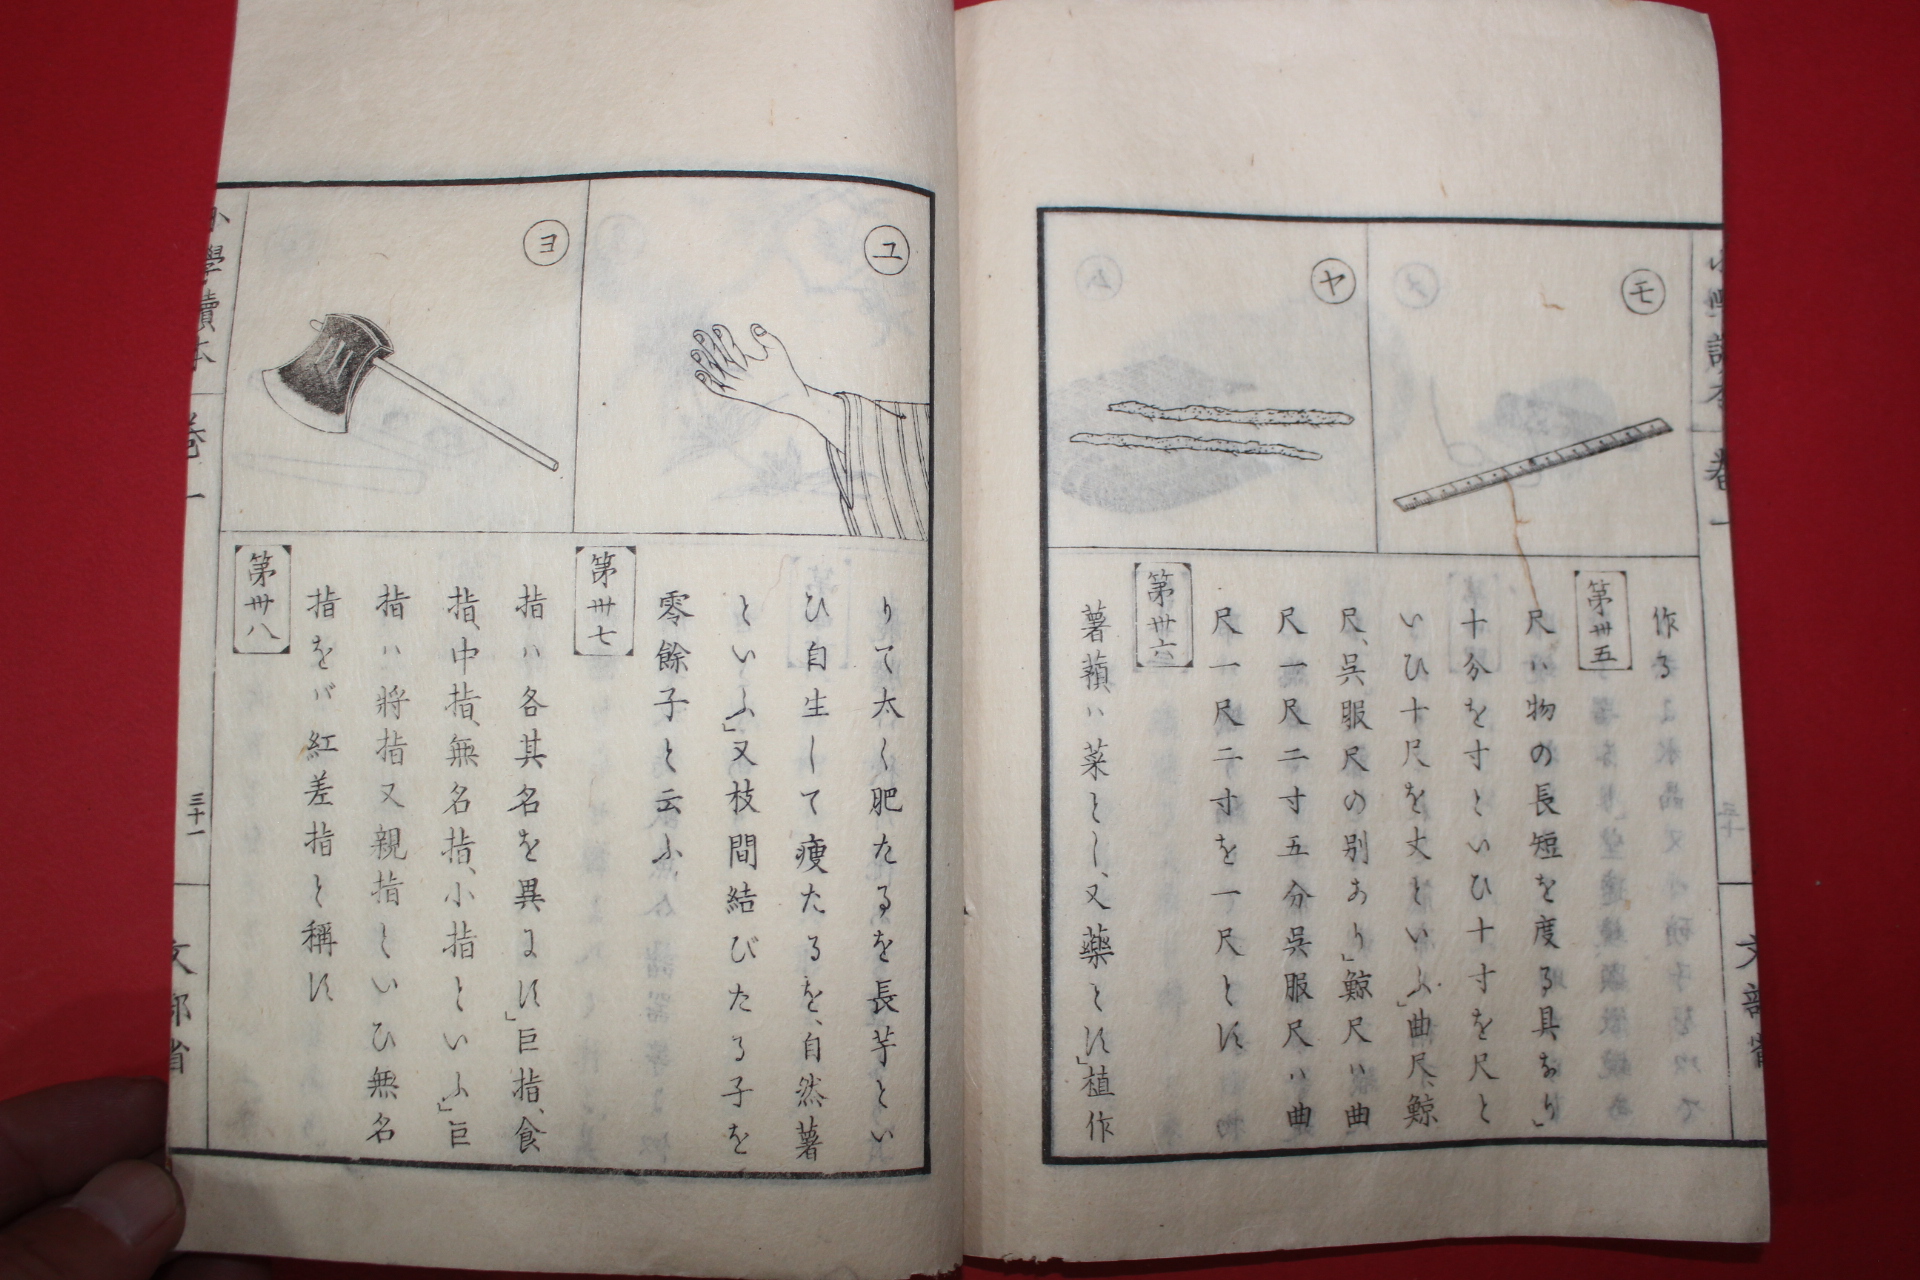 小學讀本 卷一
文部省
モ
ヤ
作る
第卅五
尺ハ物の長短を度る具なり」
十分を寸といひ十寸を尺と
いひ十尺を丈といふ」曲尺、鯨
尺、呉服尺の別あり」鯨尺ハ曲
尺一尺二寸五分呉服尺ハ曲
尺一尺二寸を一尺とす
第卅六
薯蕷ハ菜とし、又藥とす」植作
ユ
ヨ
りて太く肥たるを長芋とい
ひ自生して痩たるを、自然薯
といふ」又枝間結びたる子を
零餘子と云ふ
第卅七
指ハ各其名を異にす」巨指、食
指、中指、無名指、小指といふ」巨
指ハ將指又親指といひ無名
指をバ紅差指と稱す
第卅八
小學讀本 卷一
三十一
文部省